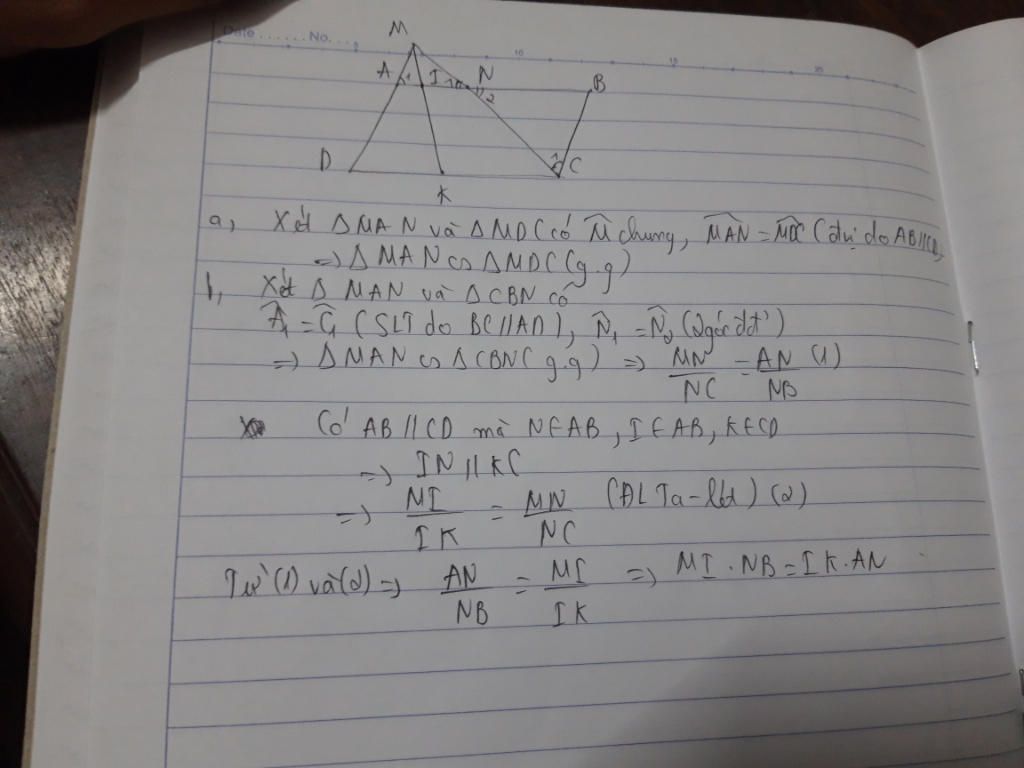 Date ...... No. ...
10 15 20
M
A 1 I 1 N 2 B
D K C
a, Xét ΔMAN và ΔMDC có M̂ chung, MAN = MDC (đvị do AB//CD)
=> ΔMAN ∽ ΔMDC (g.g)
b, Xét Δ MAN và ΔCBN có
Â₁ = Ĉ₁ (SLT do BC//AD), N̂₁ = N̂₂ (2góc đđ)
=> ΔMAN ∽ ΔCBN (g.g) => MN/NC = AN/NB (1)
Có AB // CD mà N∈AB, I∈AB, K∈CD
=> IN // KC
=> MI/IK = MN/NC (ĐL Ta-lét) (2)
Từ (1) và (2) => AN/NB = MI/IK => MI . NB = IK . AN